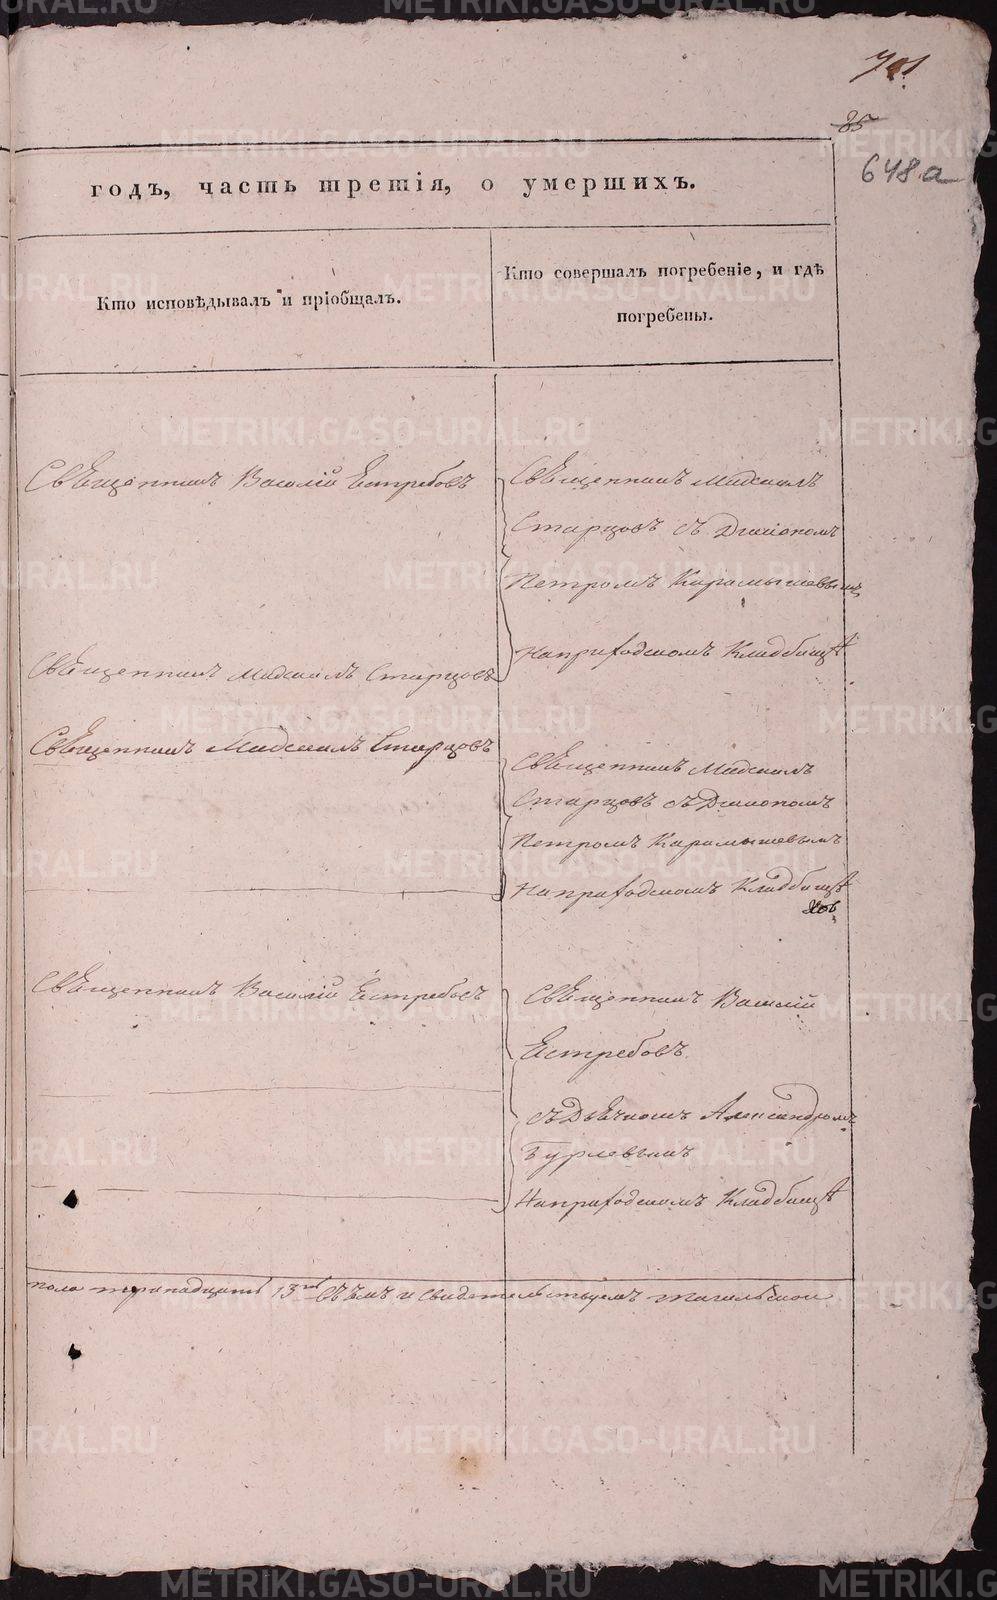 85
648 а
годъ, часть третія, о умершихъ.
Кто исповѣдывалъ и пріобщалъ.
Кто совершалъ погребеніе, и гдѣ
погребены.
Священникъ Василій Ястребовъ
Священникъ Максимъ
Старцовъ съ Діакономъ
Петромъ Карамышевымъ
На приходскомъ Кладбищѣ
Священникъ Максимъ Старцовъ
Священникъ Максимъ Старцовъ
Священникъ Максимъ
Старцовъ съ Діакономъ
Петромъ Карамышевымъ
На приходскомъ Кладбищѣ
Священникъ Василій Ястребовъ
Священникъ Василій
Ястребовъ
съ Дьячкомъ Александромъ
Бурлевымъ
На приходскомъ Кладбищѣ
пола тринадцать 13 въ чемъ и свидетельствуемъ
METRIKI.GASO-URAL.RU